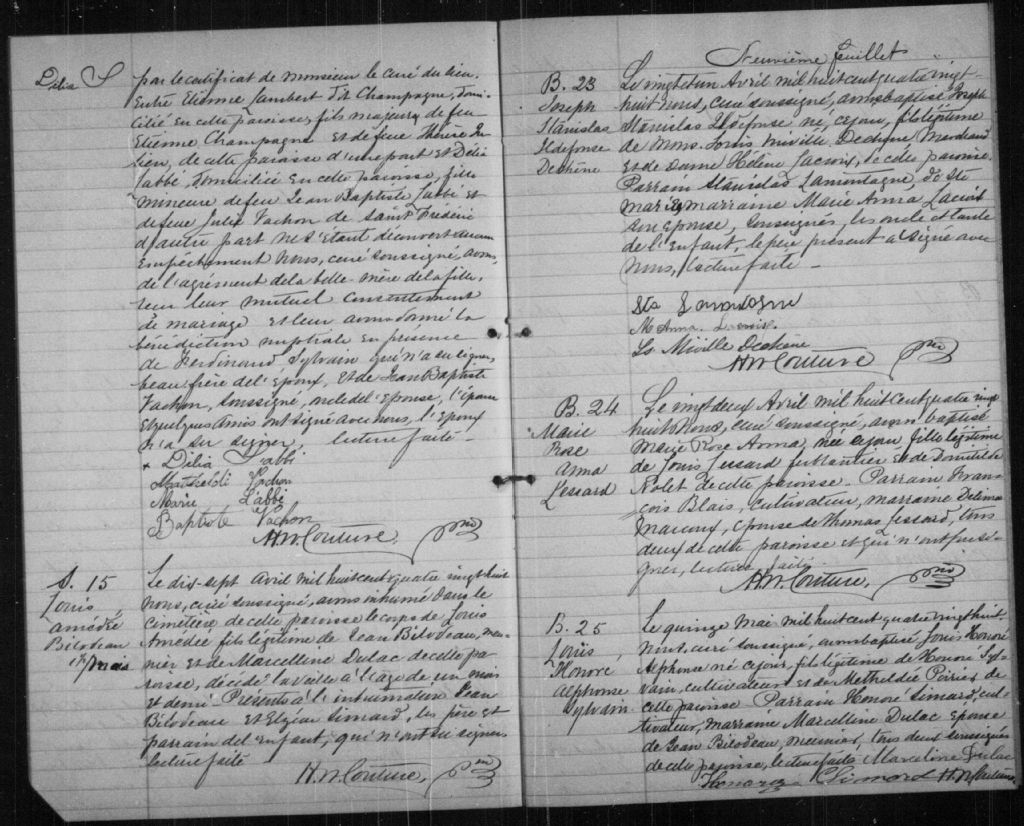 Délia L
par le certificat de monsieur le curé du lieu.
Entre Etienne Lambert dit Champagne, domi-
cilié en cette paroisse, fils majeur de feu
Etienne Champagne et de feue
de cette paroisse d'une part et Délia
Labbé, domiciliée en cette paroisse, fille
mineure de feu Jean Baptiste Labbé et
de feue Julie Vachon de Saint Frédéric
d'autre part ne s'étant découvert aucun
empêchement nous, curé soussigné, avons,
de l'agrément de la belle-mère de la fille,
reçu leur mutuel consentement
de mariage et leur avons donné la
bénédiction nuptiale en présence
de Ferdinand Sylvain qui n'a su signer
beau frère de l'époux, et de Jean Baptiste
Vachon, soussigné, oncle de l'épouse, l'épouse
et quelques amis ont signé avec nous, l'époux
n'a su signer, lecture faite -
+ Délia Labbé
Vachon
Marie Labbé
Baptiste Vachon
H. N. Couture, Ptre
S. 15
Louis
Amédée
Bilodeau
1½ mois
Le dix-sept Avril mil huit cent quatre vingt huit
nous, curé soussigné, avons inhumé dans le
cimetière de cette paroisse le corps de Louis
Amédée fils légitime de Jean Bilodeau, meu-
nier et de Marcelline Dulac de cette pa-
roisse, décédé la veille à l'âge de un mois
et demi Présents à l'inhumation Jean
Bilodeau et Elzéar Simard, les père et
parrain de l'enfant, qui n'ont su signer
lecture faite
H. N. Couture, Ptre
Neuvième feuillet
B. 23
Joseph
Stanislas
Ildefonse
Dechêne
Le vingt et un Avril mil huit cent quatre vingt-
huit nous, curé soussigné, avons baptisé Joseph
Stanislas Ildefonse né ce jour, fils légitime
de Mons. Louis Miville Dechêne Marchand
et de Dame Hélène Lacroix, de cette paroisse.
Parrain Stanislas Lamontagne, de Ste
Marie, marraine Marie Anna Lacroix
son épouse, soussignés, les oncle et tante
de l'enfant, le père présent a signé avec
nous, lecture faite -
Sts Lamontagne
M Anna Lacroix
Ls Miville Dechêne
H. N. Couture Ptre
B. 24
Marie
Rose
Anna
Lessard
Le vingt deux Avril mil huit cent quatre vingt
huit nous, curé soussigné, avons baptisé
Marie Rose Anna, née ce jour fille légitime
de Louis Lessard ferblantier et de Domitilde
Nolet de cette paroisse - Parrain Fran-
çois Blais, cultivateur, marraine Délima
Marcoux, épouse de Thomas Lessard, tous
deux de cette paroisse et qui n'ont pu si-
gner, lecture faite.
H. N. Couture, Ptre
B. 25
Louis,
Honoré
Alphonse
Sylvain
Le quinze Mai mil huit cent quatre vingt huit
nous, curé soussigné, avons baptisé Louis Honoré
Alphonse né ce jour, fils légitime de Honoré Syl-
vain, cultivateur et de Metheldie Poirier de
cette paroisse Parrain Honoré Simard, cul-
tivateur, marraine Marcelline Dulac épouse
de Jean Bilodeau, meunier, tous deux soussignés
de cette paroisse, lecture faite Marceline Dulac
Honoré Simard H. N. Couture